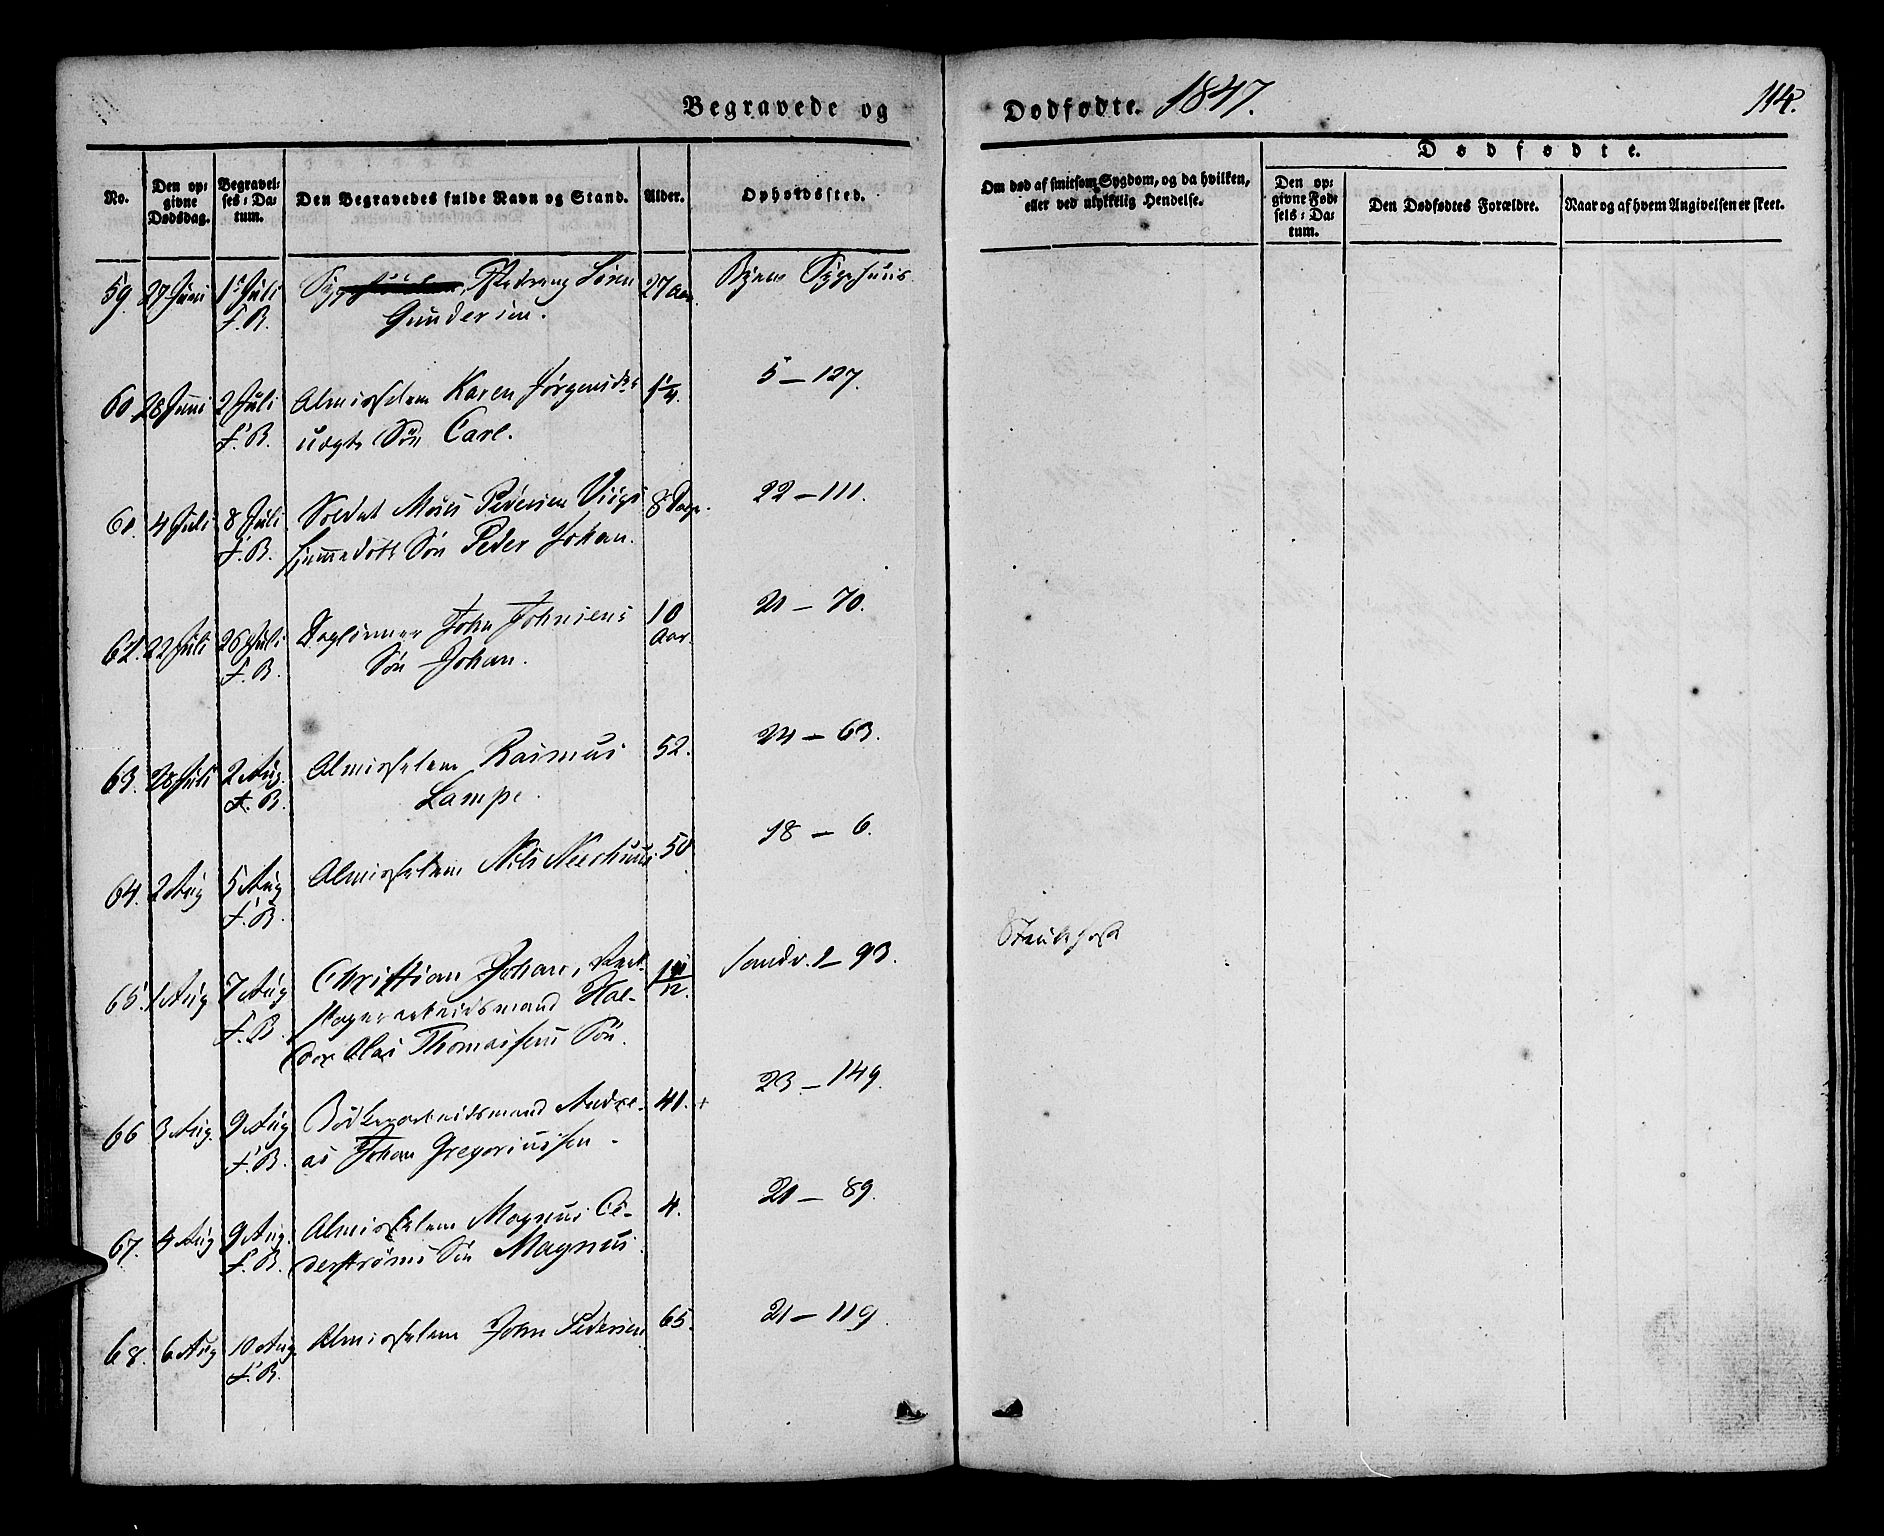 Begravede og
Dødfødte. 1847.
114.
No.
Den op-
givne
Dødsdag.
Begravel-
ses-Da-
tum.
Den Begravedes fulde Navn og Stand.
Alder.
Opholdssted.
Om død af smitsom Sygdom, og da hvilken,
eller ved ulykkelig Hendelse.
Dødfødte.
Den op-
givne Fød-
sels-Da-
tum.
Den Dødfødtes Forældre.
Naar og af hvem Angivelsen er skeet.
59. 27 Juni 1ste Juli Søren 27 Aar. Byens Sygehuus
F. B. Gundersen.
60. 28 Juni 2 Juli Almisselem Karen Jørgensdtr 1 1/4. 5 – 127.
F. B. uægte Søn Carl.
61. 4 Juli 8 Juli Soldat Mons Pedersen 8 Dage. 22 – 111.
F. B. hjemmedøbt Søn Peder Johan.
62. 22 Juli 26 Juli Dagleiner John Johnsens 10 Aar. 21 – 70.
F. B. Søn Johan.
63. 28 Juli 2 Aug. Almisselem Rasmus 52. 24 – 63.
F. B. Lampe.
64. 2 Aug 5 Aug Almisselem Nils 50 18 – 6.
F. B.
65. 1 Aug 7 Aug Christian Johan, Sandv. 2 – 93. Strubehoste
F. B. arbeidsmand Hal-
dor Olai Thomassens Søn.
66 3 Aug. 9 Aug Bødkerarbeidsmand Andre- 41. + 23 – 149.
F. B. as Johan Gregoriussen.
67. 4 Aug 9 Aug. Almisselem Magnus Ce- 4. 21 – 89.
F. B. derstrøms Søn Magnus.
68. 6 Aug 10 Aug. Almisselem John Pedersen 65. 21 – 119.
F. B.